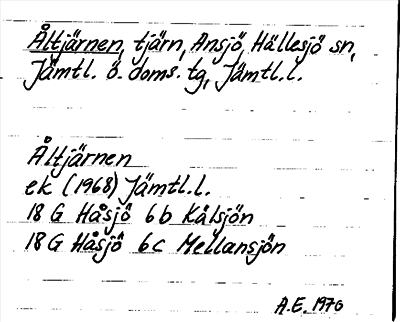 Åltjärnen, tjärn, Ansjö, Hällesjö sn,
Jämtl. ö. doms. tg, Jämtl.l.
Åltjärnen
ek (1968) Jämtl.l.
18 G Håsjö 6 b Kälsjön
18 G Håsjö 6 c Mellansjön
A.E. 1970